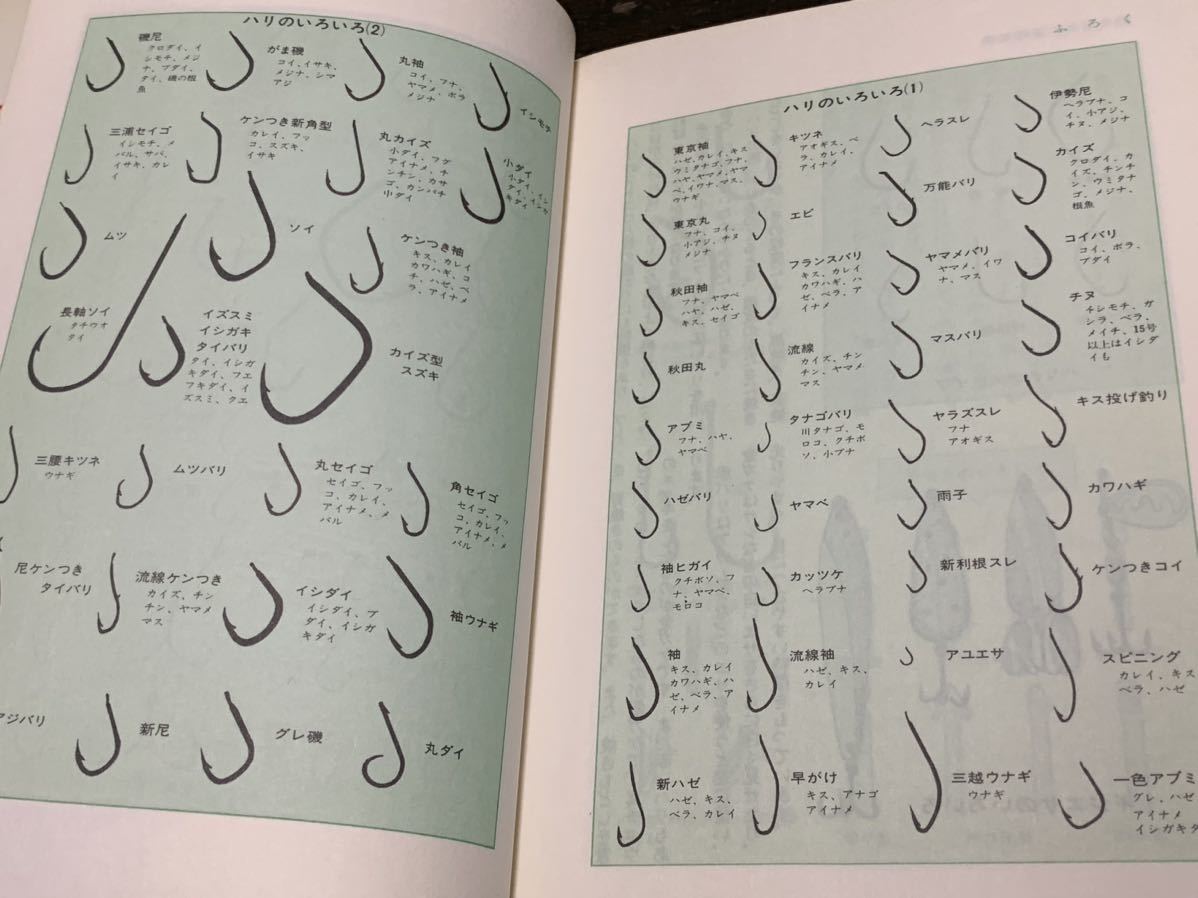 ハリのいろいろ(2)
磯尼
クロダイ、イ
シモチ、メジ
ナ、ブダイ、
タイ、磯の根
魚
がま磯
コイ、イサキ、
メジナ、シマ
アジ
丸袖
コイ、フナ、
ヤマメ、ボラ
メジナ
イシモチ
三浦セイゴ
イシモチ、メ
バル、サバ、
イサキ、カレ
イ
ケンつき新角型
カレイ、フッ
コ、スズキ、
イサキ
丸カイズ
小ダイ、フグ
アイナメ、チ
ンチン、カサ
ゴ、カンパチ
小ダイ
小ダイ
ムツ
ソイ
ケンつき袖
キス、カレイ
カワハギ、コ
チ、ハゼ、ベ
ラ、アイナメ
長軸ソイ
タチウオ
タイ
イズスミ
イシガキ
タイバリ
タイ、イシガ
キダイ、フエ
フキダイ、イ
ズスミ、クエ
カイズ型
スズキ
三腰キツネ
ウナギ
ムツバリ
丸セイゴ
セイゴ、フッ
コ、カレイ、
アイナメ、メ
バル
角セイゴ
セイゴ、フッ
コ、カレイ、
アイナメ・メ
バル
尼ケンつき
タイバリ
流線ケンつき
カイズ、チン
チン、ヤマメ
マス
イシダイ
イシダイ、ブ
ダイ、イシガ
キダイ
袖ウナギ
アジバリ
新尼
グレ磯
丸ダイ
ふろく
ハリのいろいろ(1)
東京袖
ハゼ、カレイ、キス
ウミタナゴ、フナ、
ハヤ、ヤマメ、ヤマ
ベ、イワナ、マス、
ウナギ
キツネ
アオギス、ベ
ラ、カレイ、
アイナメ
ヘラスレ
伊勢尼
ヘラブナ、コ
イ、小アジ、
チヌ、メジナ
東京丸
フナ、コイ、
小アジ、チヌ
メジナ
エビ
万能バリ
カイズ
クロダイ、カ
イズ、チンチ
ン、ウミタナ
ゴ、メジナ、
根魚
秋田袖
フナ、ヤマベ
ハヤ、ハゼ、
キス、セイゴ
フランスバリ
キス、カレイ
カワハギ、ハ
ゼ、ベラ、ア
イナメ
ヤマメバリ
ヤマメ、イワ
ナ、マス
コイバリ
コイ、ボラ、
ブダイ
秋田丸
流線
カイズ、チン
チン、ヤマメ
マス
マスバリ
チヌ
イシモチ、ガ
シラ、ベラ、
メイチ、15号
以上はイシダ
イも
アブミ
フナ、ハヤ、
ヤマベ
タナゴバリ
川タナゴ、モ
ロコ、クチボ
ソ、小ブナ
ヤラズスレ
フナ
アオギス
キス投げ釣り
ハゼバリ
ヤマベ
雨子
カワハギ
袖ヒガイ
クチボソ、フ
ナ、ヤマベ、
モロコ
カッツケ
ヘラブナ
新利根スレ
ケンつきコイ
袖
キス、カレイ
カワハギ、ハ
ゼ、ベラ、ア
イナメ
流線袖
ハゼ、キス、
カレイ
アユエサ
スピニング
カレイ、キス
ベラ、ハゼ
新ハゼ
ハゼ、キス、
ベラ、カレイ
早がけ
キス、アナゴ
アイナメ
三越ウナギ
ウナギ
一色アブミ
グレ、ハゼ
アイナメ
イシガキダ